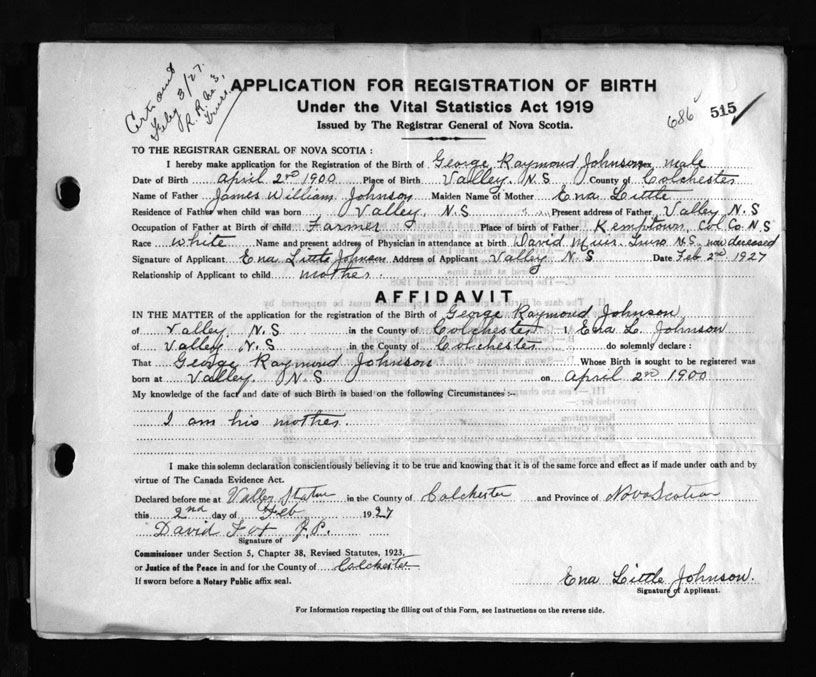 Feby 3/27.
R.R. no 3,
Truro.
APPLICATION FOR REGISTRATION OF BIRTH
Under the Vital Statistics Act 1919
Issued by The Registrar General of Nova Scotia.
686 515
TO THE REGISTRAR GENERAL OF NOVA SCOTIA :
I hereby make application for the Registration of the Birth of George Raymond Johnson Sex male
Date of Birth April 2nd 1900 Place of Birth Valley. N.S County of Colchester
Name of Father James William Johnson Maiden Name of Mother Ena Little
Residence of Father when child was born Valley. N.S Present address of Father Valley N.S
Occupation of Father at Birth of child Farmer Place of Birth of Father Kemptown, Col. Co. N.S
Race White Name and present address of Physician in attendance at birth David Muir. Truro. N.S. now deceased
Signature of Applicant Ena Little Johnson Address of Applicant Valley N.S Date Feb 2nd 1927
Relationship of Applicant to child mother.
AFFIDAVIT
IN THE MATTER of the application for the registration of the Birth of George Raymond Johnson
of Valley. N.S in the County of Colchester I, Ena L. Johnson
of Valley. N.S in the County of Colchester do solemnly declare :
That George Raymond Johnson Whose Birth is sought to be registered was
born at Valley. N.S on April 2nd 1900
My knowledge of the fact and date of such Birth is based on the following Circumstances :–
I am his mother.
I make this solemn declaration conscientiously believing it to be true and knowing that it is of the same force and effect as if made under oath and by
virtue of The Canada Evidence Act.
Declared before me at Valley Station in the County of Colchester and Province of Nova Scotia
this 2nd day of Feb 1927
David Fox J.P.
Signature of
Commissioner under Section 5, Chapter 38, Revised Statutes, 1923,
or Justice of the Peace in and for the County of Colchester
If sworn before a Notary Public affix seal.
Ena Little Johnson.
Signature of Applicant.
For Information respecting the filling out of this Form, see Instructions on the reverse side.